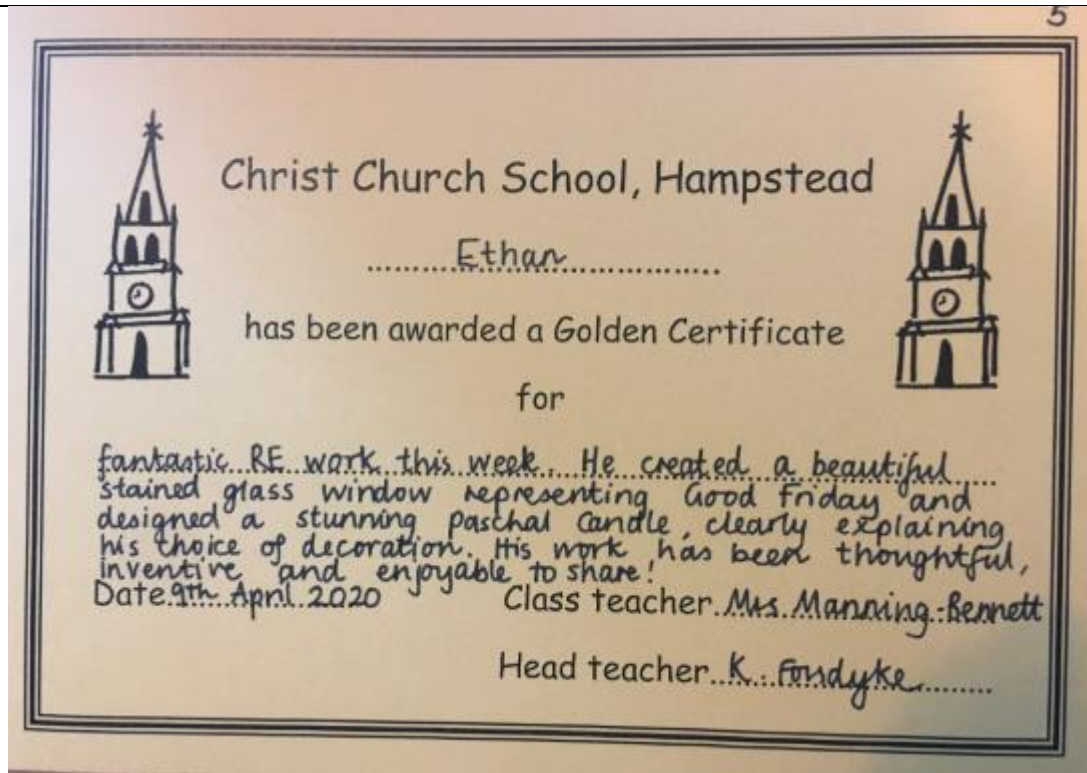 5
Christ Church School, Hampstead
Ethan
has been awarded a Golden Certificate
for
fantastic RE work this week. He created a beautiful
stained glass window representing Good Friday and
designed a stunning paschal candle, clearly explaining
his choice of decoration. His work has been thoughtful,
inventive and enjoyable to share!
Date 9th April 2020 Class teacher Mrs Manning-Bennett
Head teacher K. Fondyke